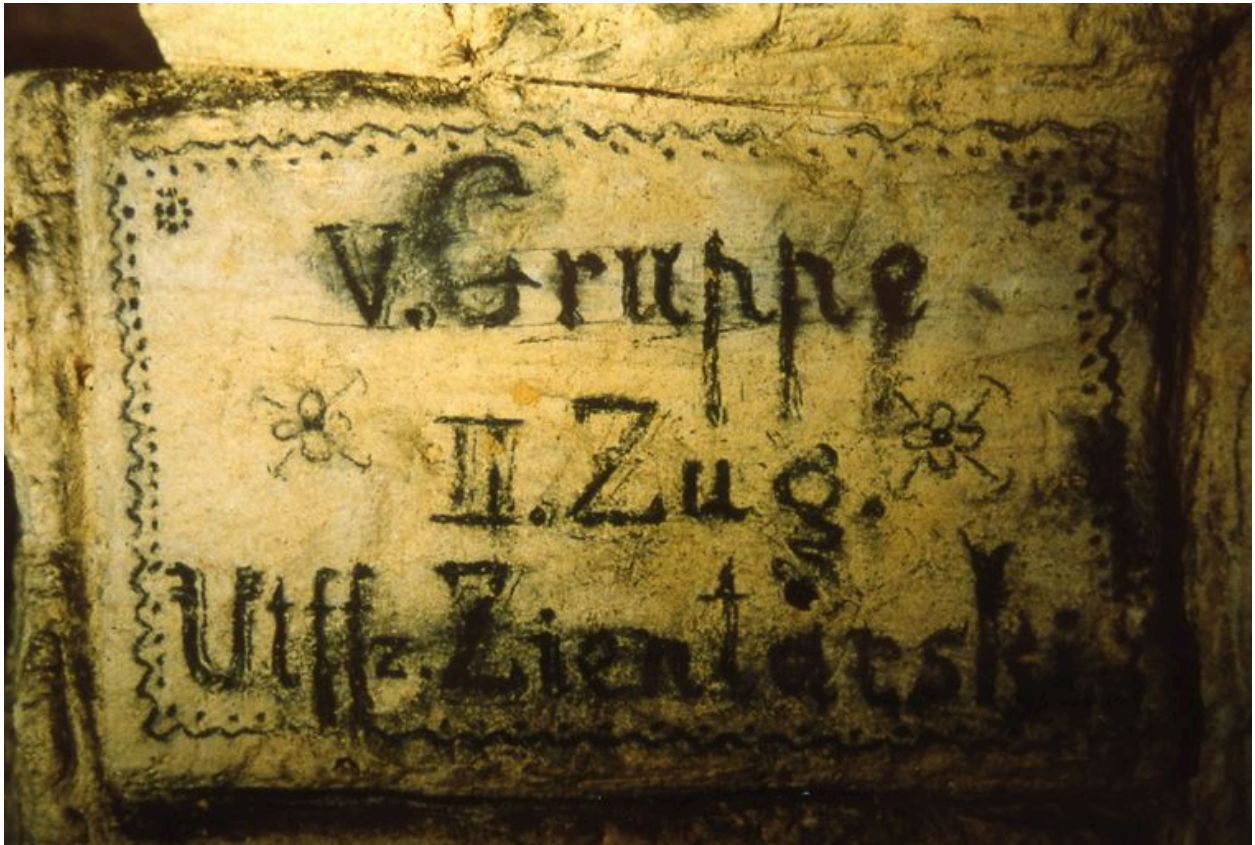 V. Gruppe
II. Zug.
Utffz. Zientarski